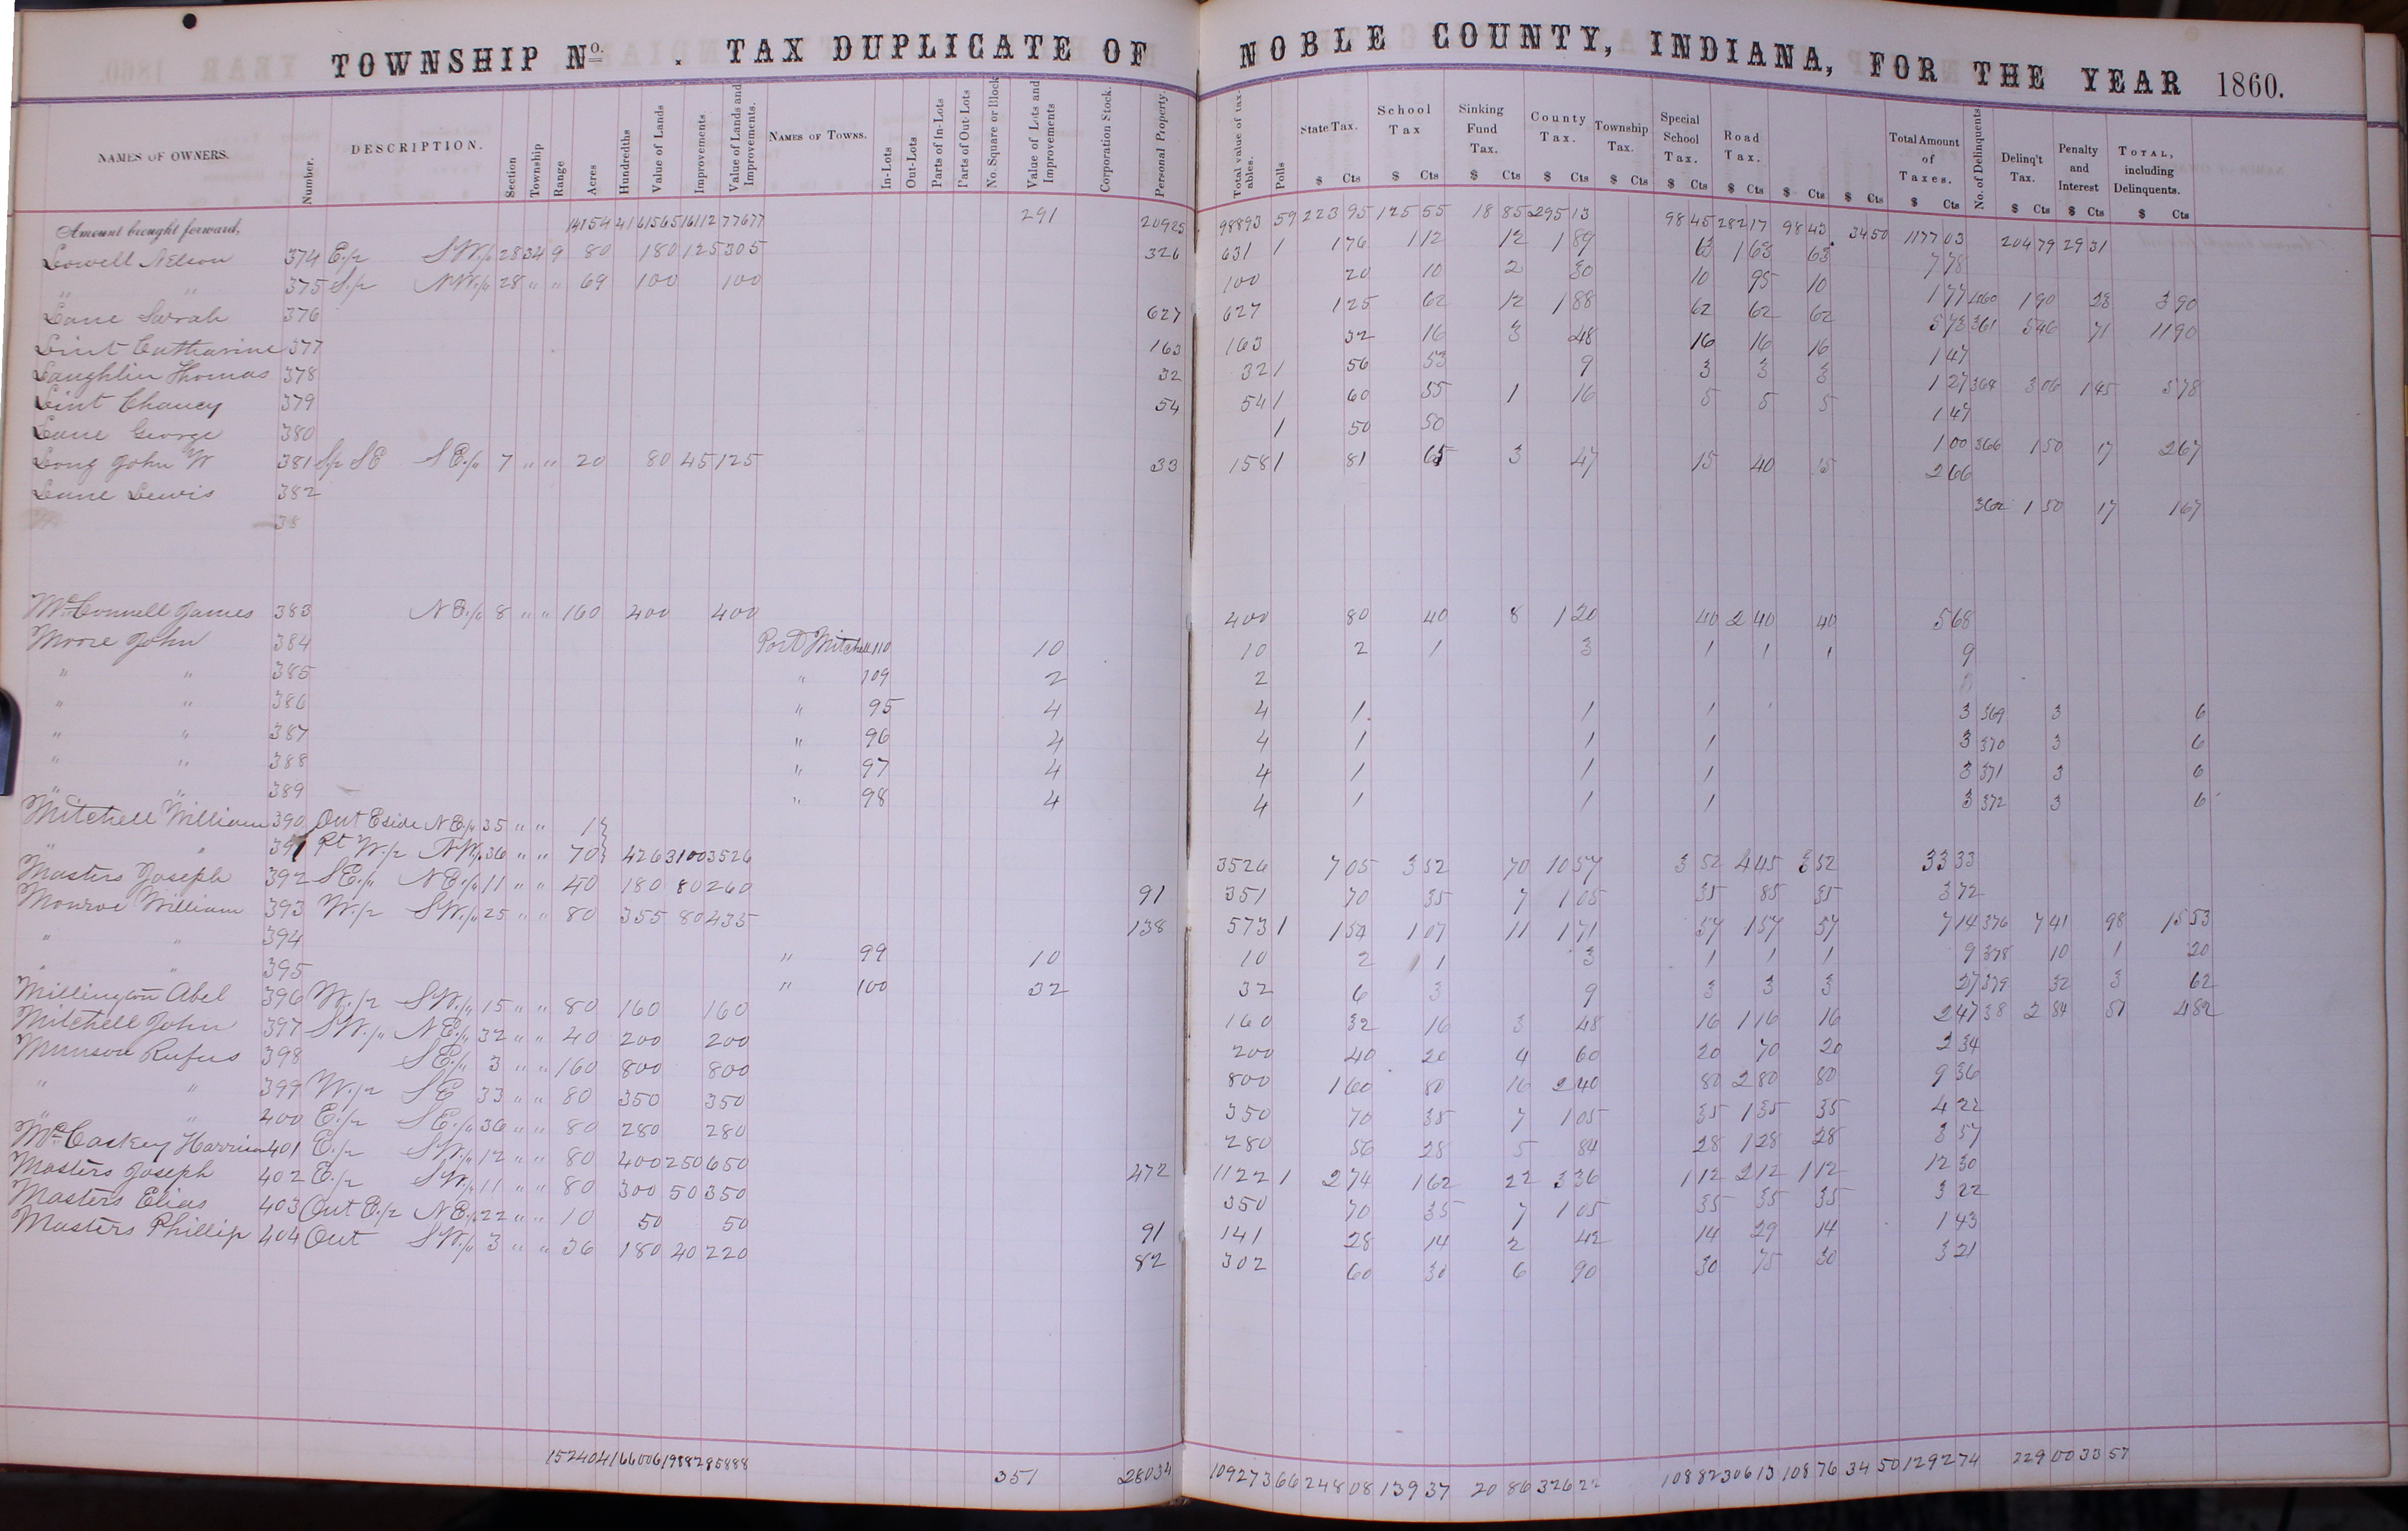 TOWNSHIP No. . TAX DUPLICATE OF NOBLE COUNTY, INDIANA, FOR THE YEAR 1860.
NAMES OF OWNERS. Number. DESCRIPTION. Section Township Range Acres Hundredths Value of Lands Improvements Value of Lands and Improvements. NAMES OF TOWNS. In-Lots Out-Lots Parts of In-Lots Parts of Out-Lots No. Square or Block Value of Lots and Improvements Corporation Stock. Personal Property. Total value of taxables. Polls State Tax. $ Cts School Tax $ Cts Sinking Fund Tax. $ Cts County Tax. $ Cts Township Tax. $ Cts Special School Tax. $ Cts Road Tax. $ Cts $ Cts $ Cts Total Amount of Taxes. $ Cts No. of Delinquents Delinq't Tax. $ Cts Penalty and Interest $ Cts TOTAL, including Delinquents. $ Cts
Amount brought forward, 14154 41 61565 16112 77677 291 20925 98893 59 223 95 125 55 18 85 295 13 98 45 282 17 98 43 34 50 1177 03 204 79 29 31
Lowell Nelson 374 E./2 S W./4 28 34 9 80 180 125 305 326 631 1 1 76 1 12 12 1 89 63 1 63 63 7 78
" " 375 S./2 N W./4 28 " " 69 100 100 100 20 10 2 30 10 95 10 1 77 1 90 23 3 90
Lane Sarah 376 627 627 1 25 62 12 1 88 62 62 62 5 73 361 5 46 71 11 90
Lint Catharine 377 163 163 32 16 3 48 16 16 16 1 47
Laughlin Thomas 378 32 32 1 56 53 9 3 3 3 1 27 364 3 06 1 45 5 78
Lint Chancy 379 54 54 1 60 55 1 16 5 5 5 1 47
Lane George 380 1 50 50 1 00 366 1 50 17 2 67
Long John W 381 S/2 S E S E./4 7 " " 20 80 45 125 33 158 1 81 65 3 47 15 40 15 2 66
Lane Lewis 382 362 1 50 17 1 67
38
McConnell James 383 N E./4 8 " " 160 400 400 400 80 40 8 1 20 40 2 40 40 5 68
Moore John 384 Port Mitchell 110 10 10 2 1 3 1 1 1 9
" " 385 " 109 2 2
" " 386 " 95 4 4 1 1 1 3 369 3 6
" " 387 " 96 4 4 1 1 1 3 370 3 6
" " 388 " 97 4 4 1 1 1 3 371 3 6
" " 389 " 98 4 4 1 1 1 3 372 3 6
Mitchell William 390 Out E side N E./4 35 " " 1
" " 391 Pt W./2 N W./4 36 " " 70 426 3100 3526 3526 7 05 3 52 70 10 57 3 52 4 45 3 52 33 33
Masters Joseph 392 S E./4 N E./4 11 " " 40 180 80 260 91 351 70 35 7 1 05 35 85 35 3 72
Monroe William 393 W./2 S W./4 25 " " 80 355 80 435 138 573 1 1 54 1 07 11 1 71 57 1 57 57 7 14 376 7 41 98 15 53
" " 394 " 99 10 10 2 1 3 1 1 1 9 378 10 1 20
" " 395 " 100 32 32 6 3 9 3 3 3 27 379 32 3 62
Millington Abel 396 W./2 S W./4 15 " " 80 160 160 160 32 16 3 48 16 1 16 16 2 47 38 2 84 51 4 82
Mitchell John 397 S W./4 N E./4 32 " " 40 200 200 200 40 20 4 60 20 70 20 2 34
Munson Rufus 398 S E./4 3 " " 160 800 800 800 1 60 80 16 2 40 80 2 80 80 9 36
" " 399 W./2 S E 33 " " 80 350 350 350 70 35 7 1 05 35 1 35 35 4 22
" " 400 E./2 S E./4 36 " " 80 280 280 280 56 28 5 84 28 1 28 28 3 57
McCaskey Harrison 401 E./2 S W./4 12 " " 80 400 250 650 472 1122 1 2 74 1 62 22 3 36 1 12 2 12 1 12 12 30
Masters Joseph 402 E./2 S W./4 11 " " 80 300 50 350 350 70 35 7 1 05 35 35 35 3 22
Masters Elias 403 Out E./2 N E./4 22 " " 10 50 50 91 141 28 14 2 42 14 29 14 1 43
Masters Phillip 404 Out S W./4 3 " " 36 180 40 220 82 302 60 30 6 90 30 75 30 3 21
15240 41 66006 19882 85888 351 28034 109273 66 248 08 139 37 20 86 326 22 108 82 306 13 108 76 34 50 1292 74 229 00 33 57